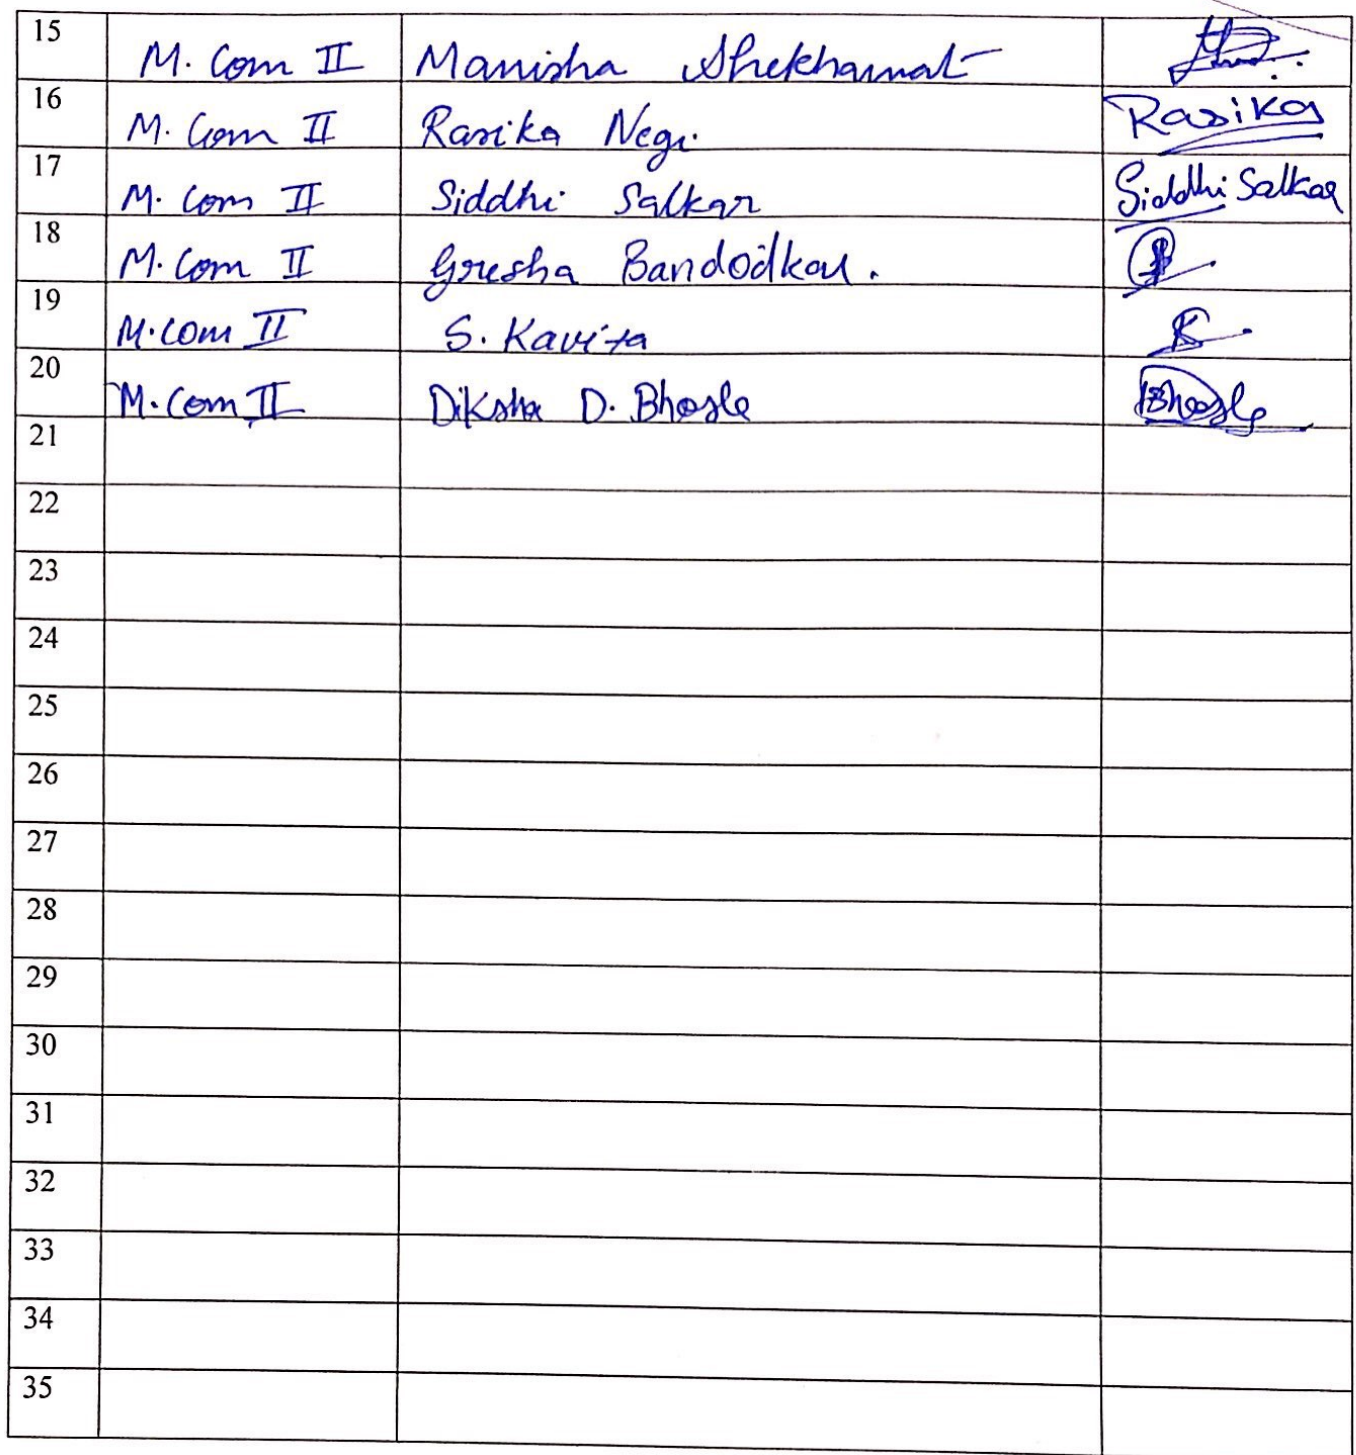 15 M. Com II Manisha
16 M. Com II Rasika Negi. Rasika
17 M. Com II Siddhi Salkar Siddhi Salkar
18 M. Com II Bandodkar.
19 M. Com II S. Kavita
20 M. Com II Diksha D. Bhosle Bhosle
21
22
23
24
25
26
27
28
29
30
31
32
33
34
35